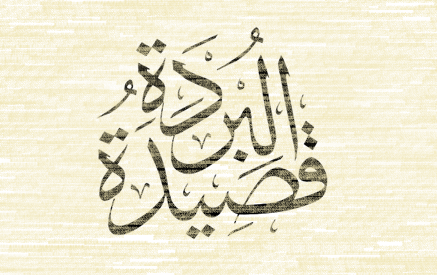 قَصِيدَةُ البُرْدَةِ